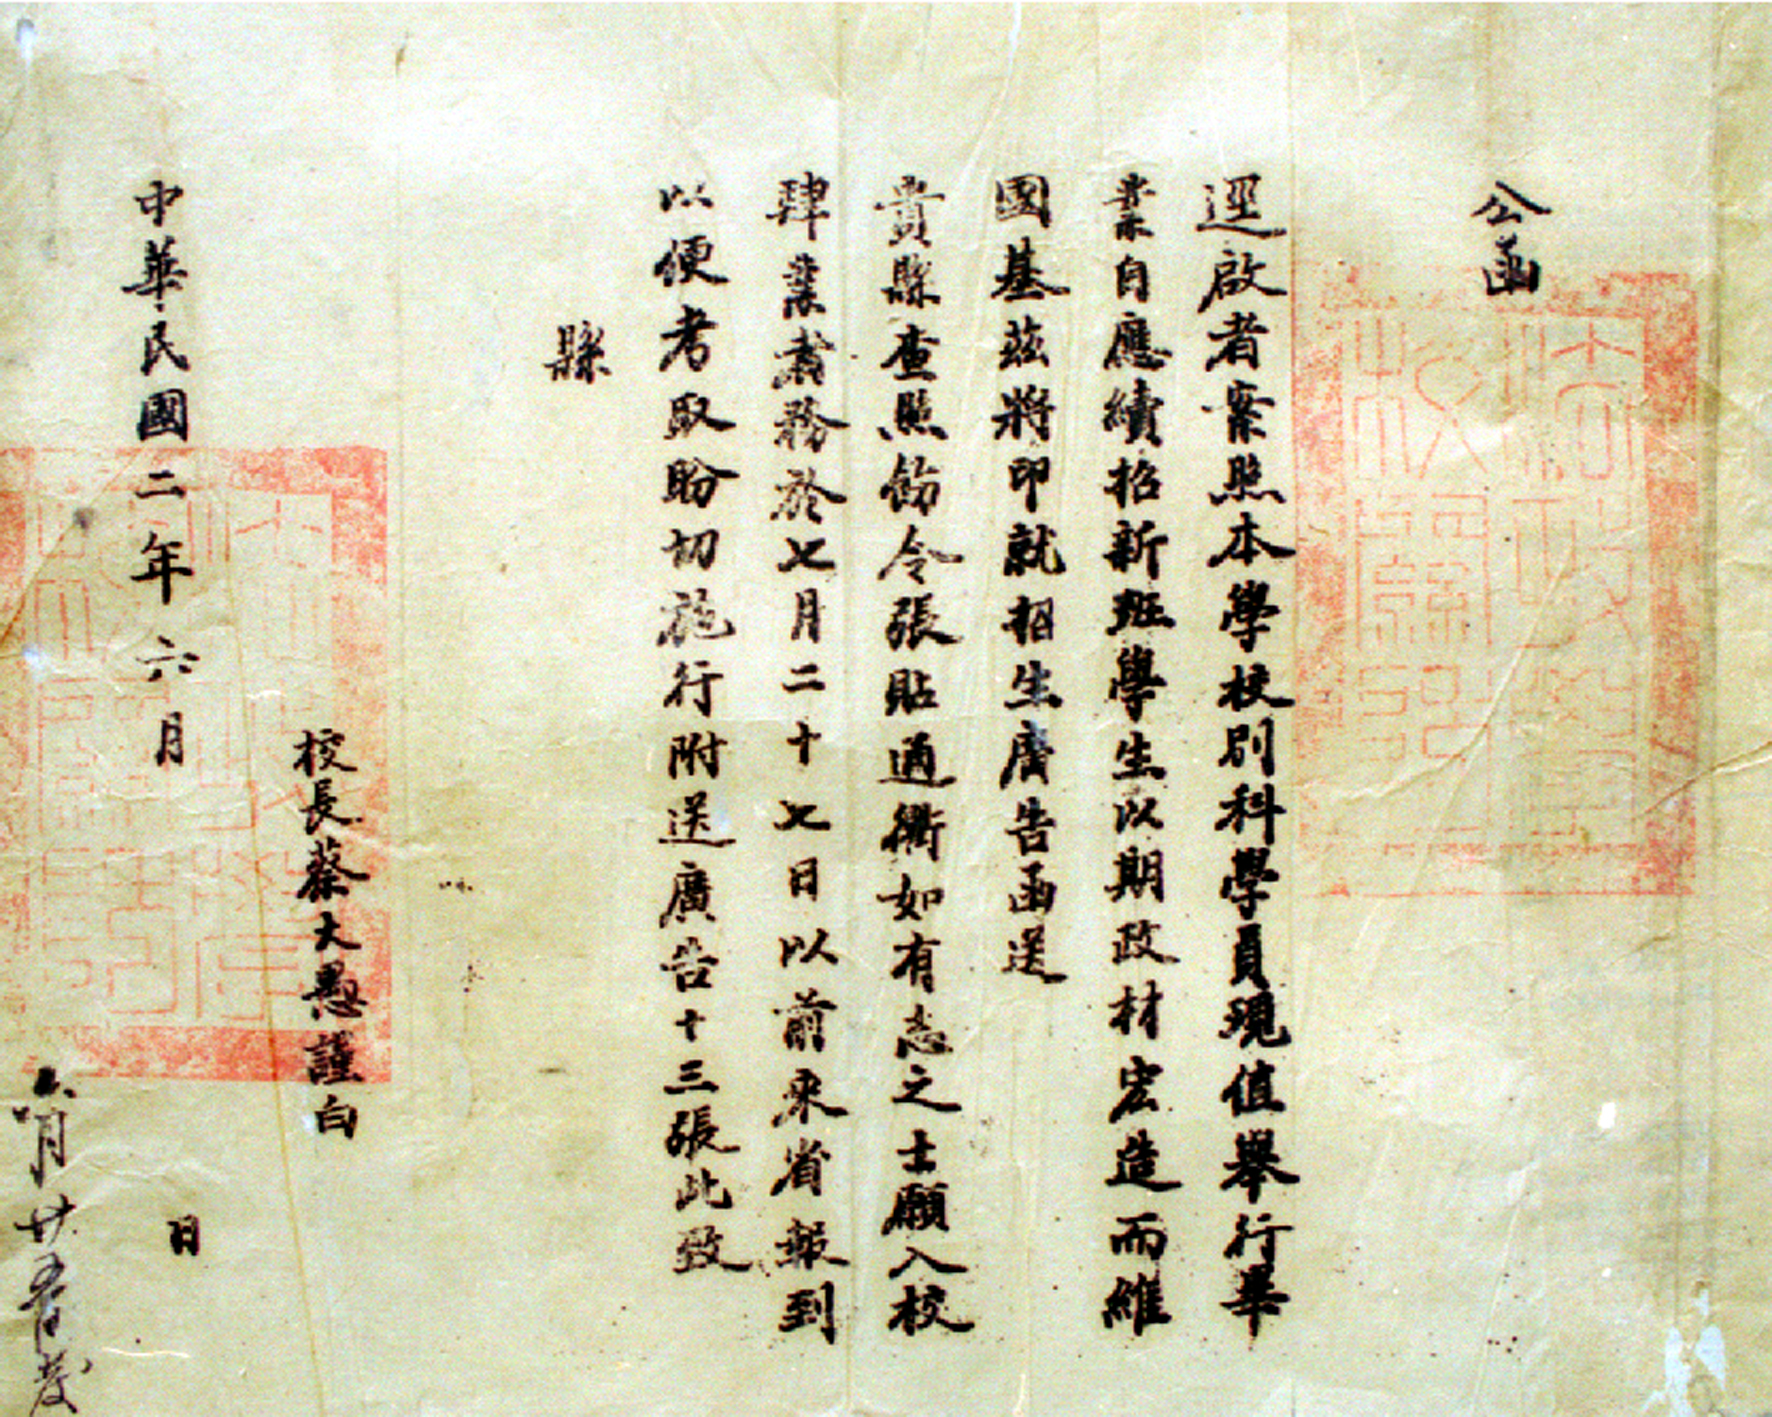 公函
逕啟者案照本學校別科學員現值舉行畢
業自應續招新班學生以期政材宏造而維
國基茲將印就招生廣告函送
貴縣查照飭令張貼通衢如有志之士願入校
肄業者務於七月二十七日以前來省報到
以便考取盼切施行附送廣告十三張此致
縣
校長蔡大愚謹白
中華民國二年六月 日
六月廿 發